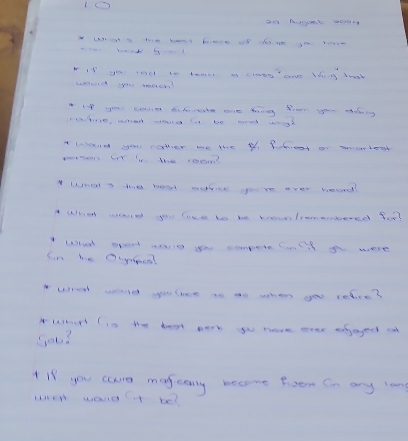 10
20 August 2024
* What's the best piece of advice you have
* If you had to teach a class one thing that
would you teach?
* If you could automate one thing from your daily
routine, what would it be and why?
* Would you rather be the funniest or smartest
person in the room?
* What's the best advice you've ever heard?
* What would you like to be known/remembered for?
* What sport would you compete in if you were
in the Olympics?
* What would you like to do when you retire?
* What is the best perk you have ever enjoyed at
job?
* If you could magically become fluent in any lang
what would it be?